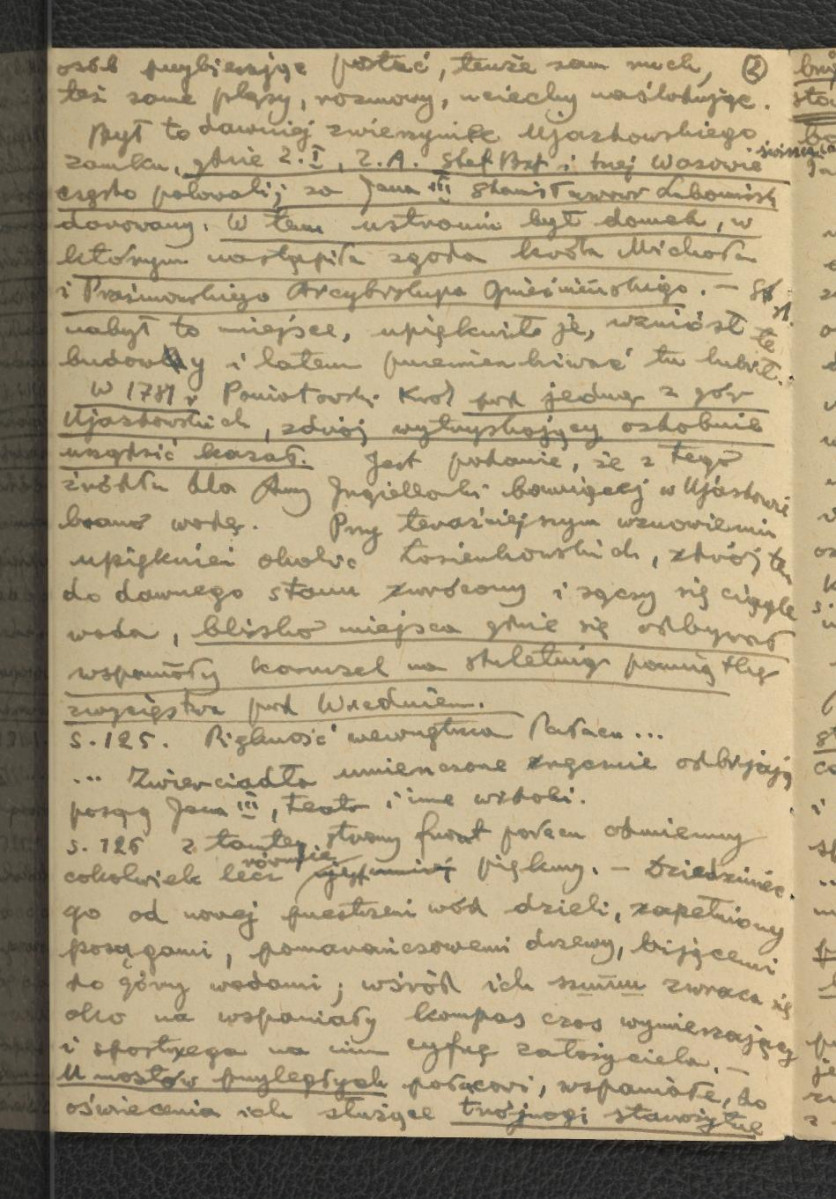 osób przybierając postać, tenże sam ruch, ②
też same pląsy, rozmowy, uciechy naśladując.
Był to dawniej zwierzyniec Ujazdowskiego
zamku, gdzie Z. I, Z. A. Stef Bat i trzej Wazowie
często polowali; za Jana III Stanisławowi Lubomirsk
darowany. W tem ustroniu był domek, w
którym nastąpiła zgoda króla Michała
i Prażmowskiego Arcybiskupa Gnieźnieńskiego. — St
nabył to miejsce, upięknił je, wzniósł te
budowy i latem przemieszkiwać tu lubił.
W 1781 r Poniatowski Król pod jedną z gór
Ujazdowskich, zdrój wytryskający ozdobnie
urządzić kazał. Jest podanie, że z tego
źródła dla Anny Jagiellonki bawiącej w Ujazdowie
brano wodę. Przy teraźniejszym wznowieniu
upiękniei okolic Łazienkowskich, zdrój ten
do dawnego stanu zwrócony i sączy się ciągle
woda, blisko miejsca gdzie się odbywał
wspaniały karuzel na stuletnią pamiątkę
zwycięstwa pod Wiedniem.
s. 125. Piękność wewnętrzna Pałacu...
... Zwierciadła umieszczone odbijają
posąg Jana III, teatr i inne widoki.
s. 126 z tamtej strony front pałacu odmienny
cokolwiek lecz równie piękny. — Dziedziniec
go od nowej przestrzeni wód dzieli, zapełniony
posągami, pomarańczowemi drzewy, bijącemi
do góry wodami; wśród ich szumu zwraca się
oko na wspaniały kompas czas wymierzający
i spostrzega na nim cyfrę założyciela. —
U mostów przyległych pałacowi, wspaniałe, do
oświecenia ich służące trójnogi starożytne